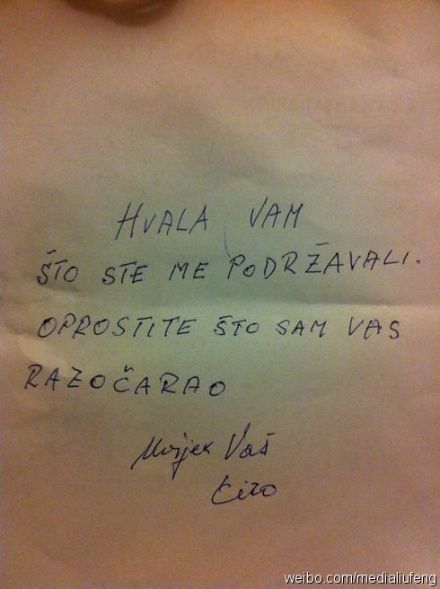 HVALA VAM
ŠTO STE ME PODRŽAVALI.
OPROSTITE ŠTO SAM VAS
RAZOČARAO
Uvijek Vaš
Ćiro
weibo.com/medialiufeng